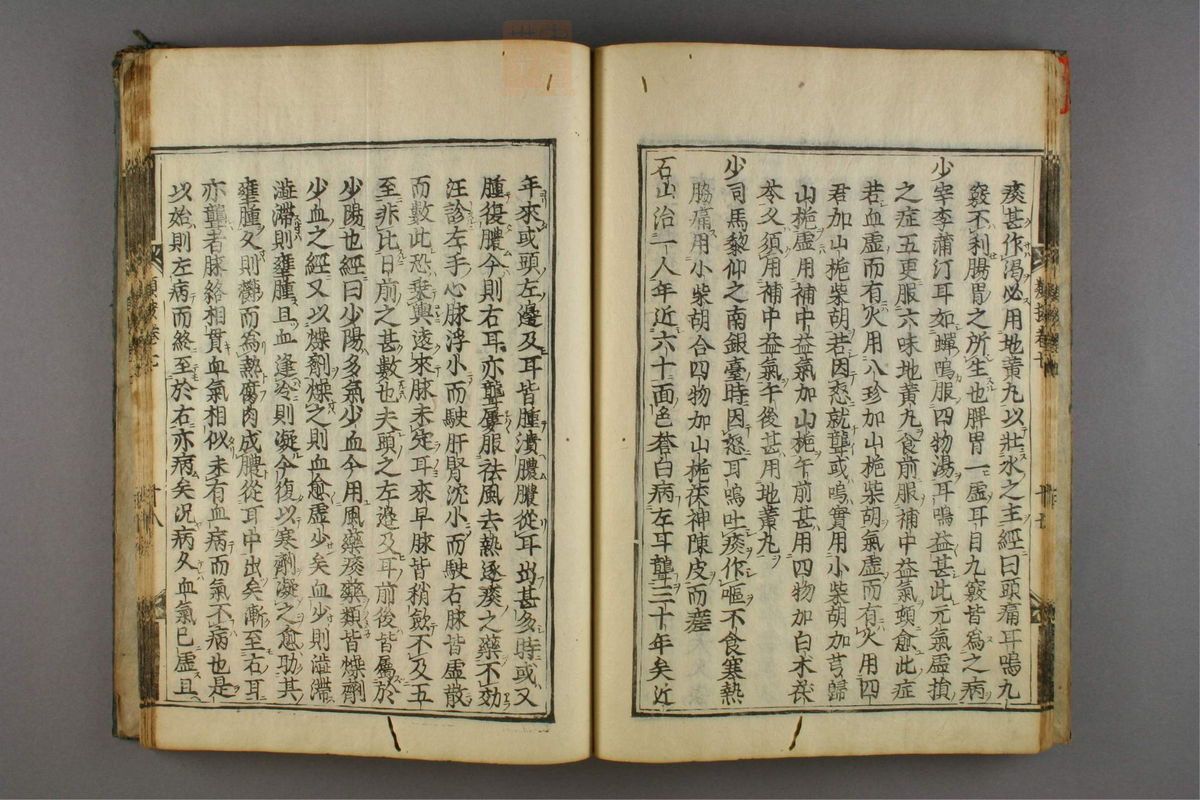 痰甚作渴必用地黄九以壯水之主經曰頭痛耳鳴九
竅不利腸胃之所生也胖胃一虚耳目九竅皆為之病
少宰李蒲汀耳如蟬鳴服四物湯耳鳴益甚此元氣虚損
之症五更服六味地黄九食前服補中益氣頓愈此症
若血虚而有火用八珍加山梔柴胡氣虚而有火用四
君加山梔柴胡若因怒就聾或鳴實用小柴胡加芎歸
山梔虚用補中益氣加山梔午前甚用四物加白术茯
苓又須用補中益氣午後甚用地黄九
少司馬黎仰之南銀臺時因怒耳鳴吐痰作嘔不食寒熱
脇痛用小柴胡合四物加山梔茯神陳皮而瘥
石山治一人年近六十面色蒼白病左耳聾三十年矣近
年來或頭左邊及耳皆腫潰膿膿從耳出甚多時或又
腫復膿今則右耳亦聾屢服祛風去熱逐痰之藥不効
汪診左手心脉浮小而駛肝腎沉小而駛右脉皆虚散
而數此恐乗輿遠來脉未定耳來早脉皆稍斂不及五
至非比日前之甚數也夫頭之左邊及耳前後皆屬於
少陽也經曰少陽多氣少血今用風藥痰藥類皆燥劑
少血之經又以燥劑燥之則血愈虚少矣血少則澁滯
澁滯則壅腫且血逢冷則凝今復以寒劑凝之愈助其
壅腫久則欝而為熱腐肉成膿從耳中出矣漸至右耳
亦聾者脉絡相貫血氣相似未有血病而氣不病也是
以始則左病而終至於右亦病矣況病久血氣已虚且